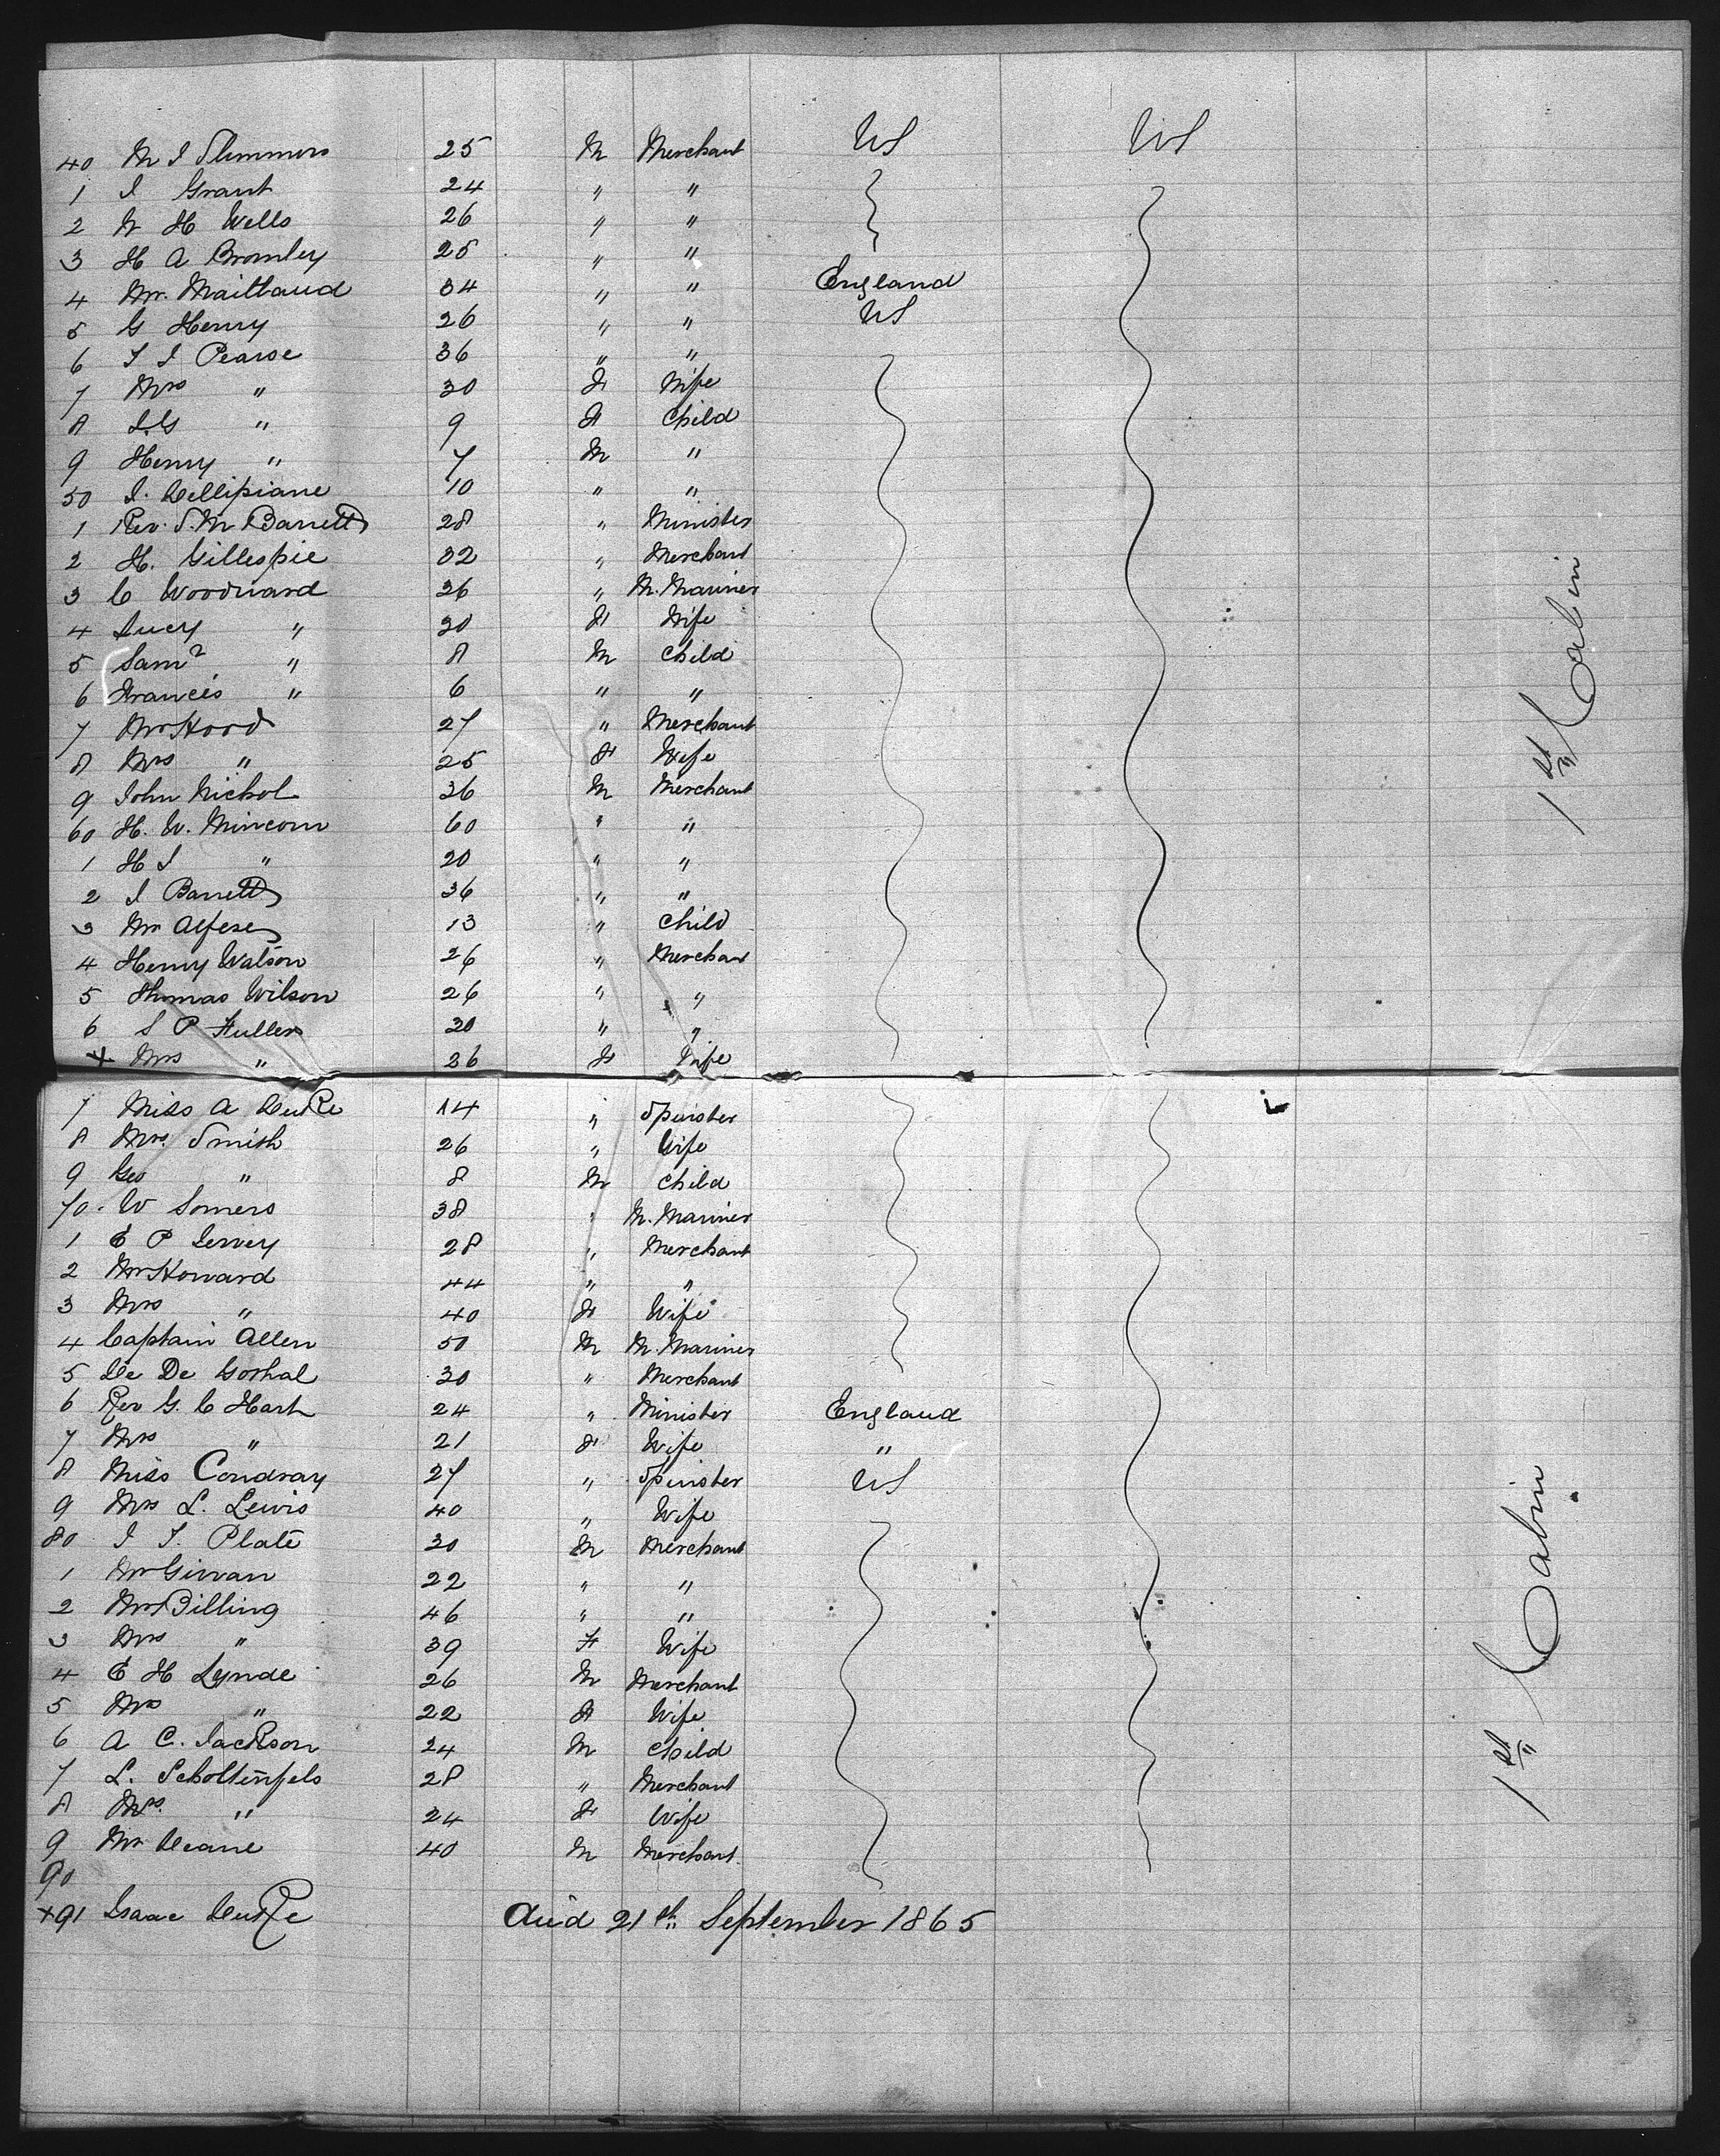 40 M I Slimmers 25 M Merchant US US
1 I Grant 24 " "
2 W H Wells 26 " "
3 H A Bromley 25 " "
4 Mr. Maitland 34 " " England
5 G Henry 26 " " US
6 T I Pearse 36 " "
7 Mrs " 30 F Wife
8 I.G " 9 F Child
9 Henry " 7 M "
50 I. Dellipiane 10 " "
1 Rev. S. M Barrett 28 " Minister
2 H. Gillespie 32 " Merchant
3 C Woodward 36 " M. Mariner
4 Lucy " 30 F Wife
5 Saml " 8 M Child
6 Francis " 6 " "
7 Mr Hood 27 " Merchant
8 Mrs " 25 F Wife
9 John Nichol 36 M Merchant
60 H. W. Mincom 60 " "
1 H I " 20 " "
2 I Barrett 36 " "
3 Mr Alfese 13 " Child
4 Henry Watson 26 " Merchant
5 Thomas Wilson 26 " "
6 S P Fuller 30 " "
+ Mrs " 26 F Wife
7 Miss A Burke 14 " Spinster
8 Mrs. Smith 26 " Wife
9 Geo " 8 M Child
70 W Somers 38 " M. Mariner
1 E P 28 " Merchant
2 Mr Howard 44 " "
3 Mrs " 40 F Wife
4 Captain Allen 50 M M. Mariner
5 De De 30 " Merchant
6 Rev G. C Hart 24 " Minister England
7 Mrs " 21 F Wife "
8 Miss Condray 27 " Spinster US
9 Mrs L. Lewis 40 " Wife
80 I T. Plate 30 M Merchant
1 Mr Girvan 22 " "
2 Mr Billing 46 " "
3 Mrs " 39 F Wife
4 E H Lynde 26 M Merchant
5 Mrs " 22 F Wife
6 A C. Jackson 24 M Child
7 L. Scholtenfels 28 " Merchant
8 Mrs. " 24 F Wife
9 Mr Deane 40 M Merchant
90
+91 Isaac Burke Aüd 21th September 1865
1st Cabin
1st Cabin